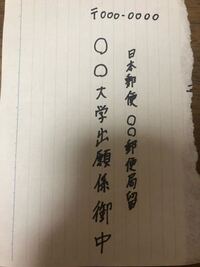 〒000-0000
日本郵便 〇〇郵便局留
〇〇大学出願係御中